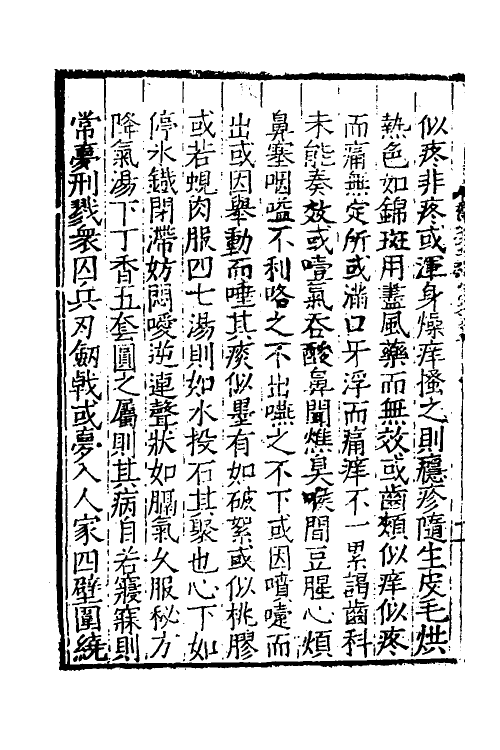 似疼非疼或渾身燥痒搔之則癮疹隨生皮毛烘
熱色如錦斑用盡風藥而無效或齒頰似痒似疼
而痛無定所或滿口牙浮而痛痒不一累謁齒科
未能奏效或噫氣吞酸鼻聞燋臭喉間豆腥心煩
鼻塞咽嗌不利咯之不出嚥之不下或因噴嚏而
出或因舉動而唾其痰似墨有如破絮或似桃膠
或若蜆肉服四七湯則如水投石其聚也心下如
停氷鐵閉滯妨悶噯逆連聲狀如膈氣久服秘方
降氣湯下丁香五套圓之屬則其病自若寢寐則
常夢刑戮衆囚兵刃劒戟或夢入人家四壁圍繞